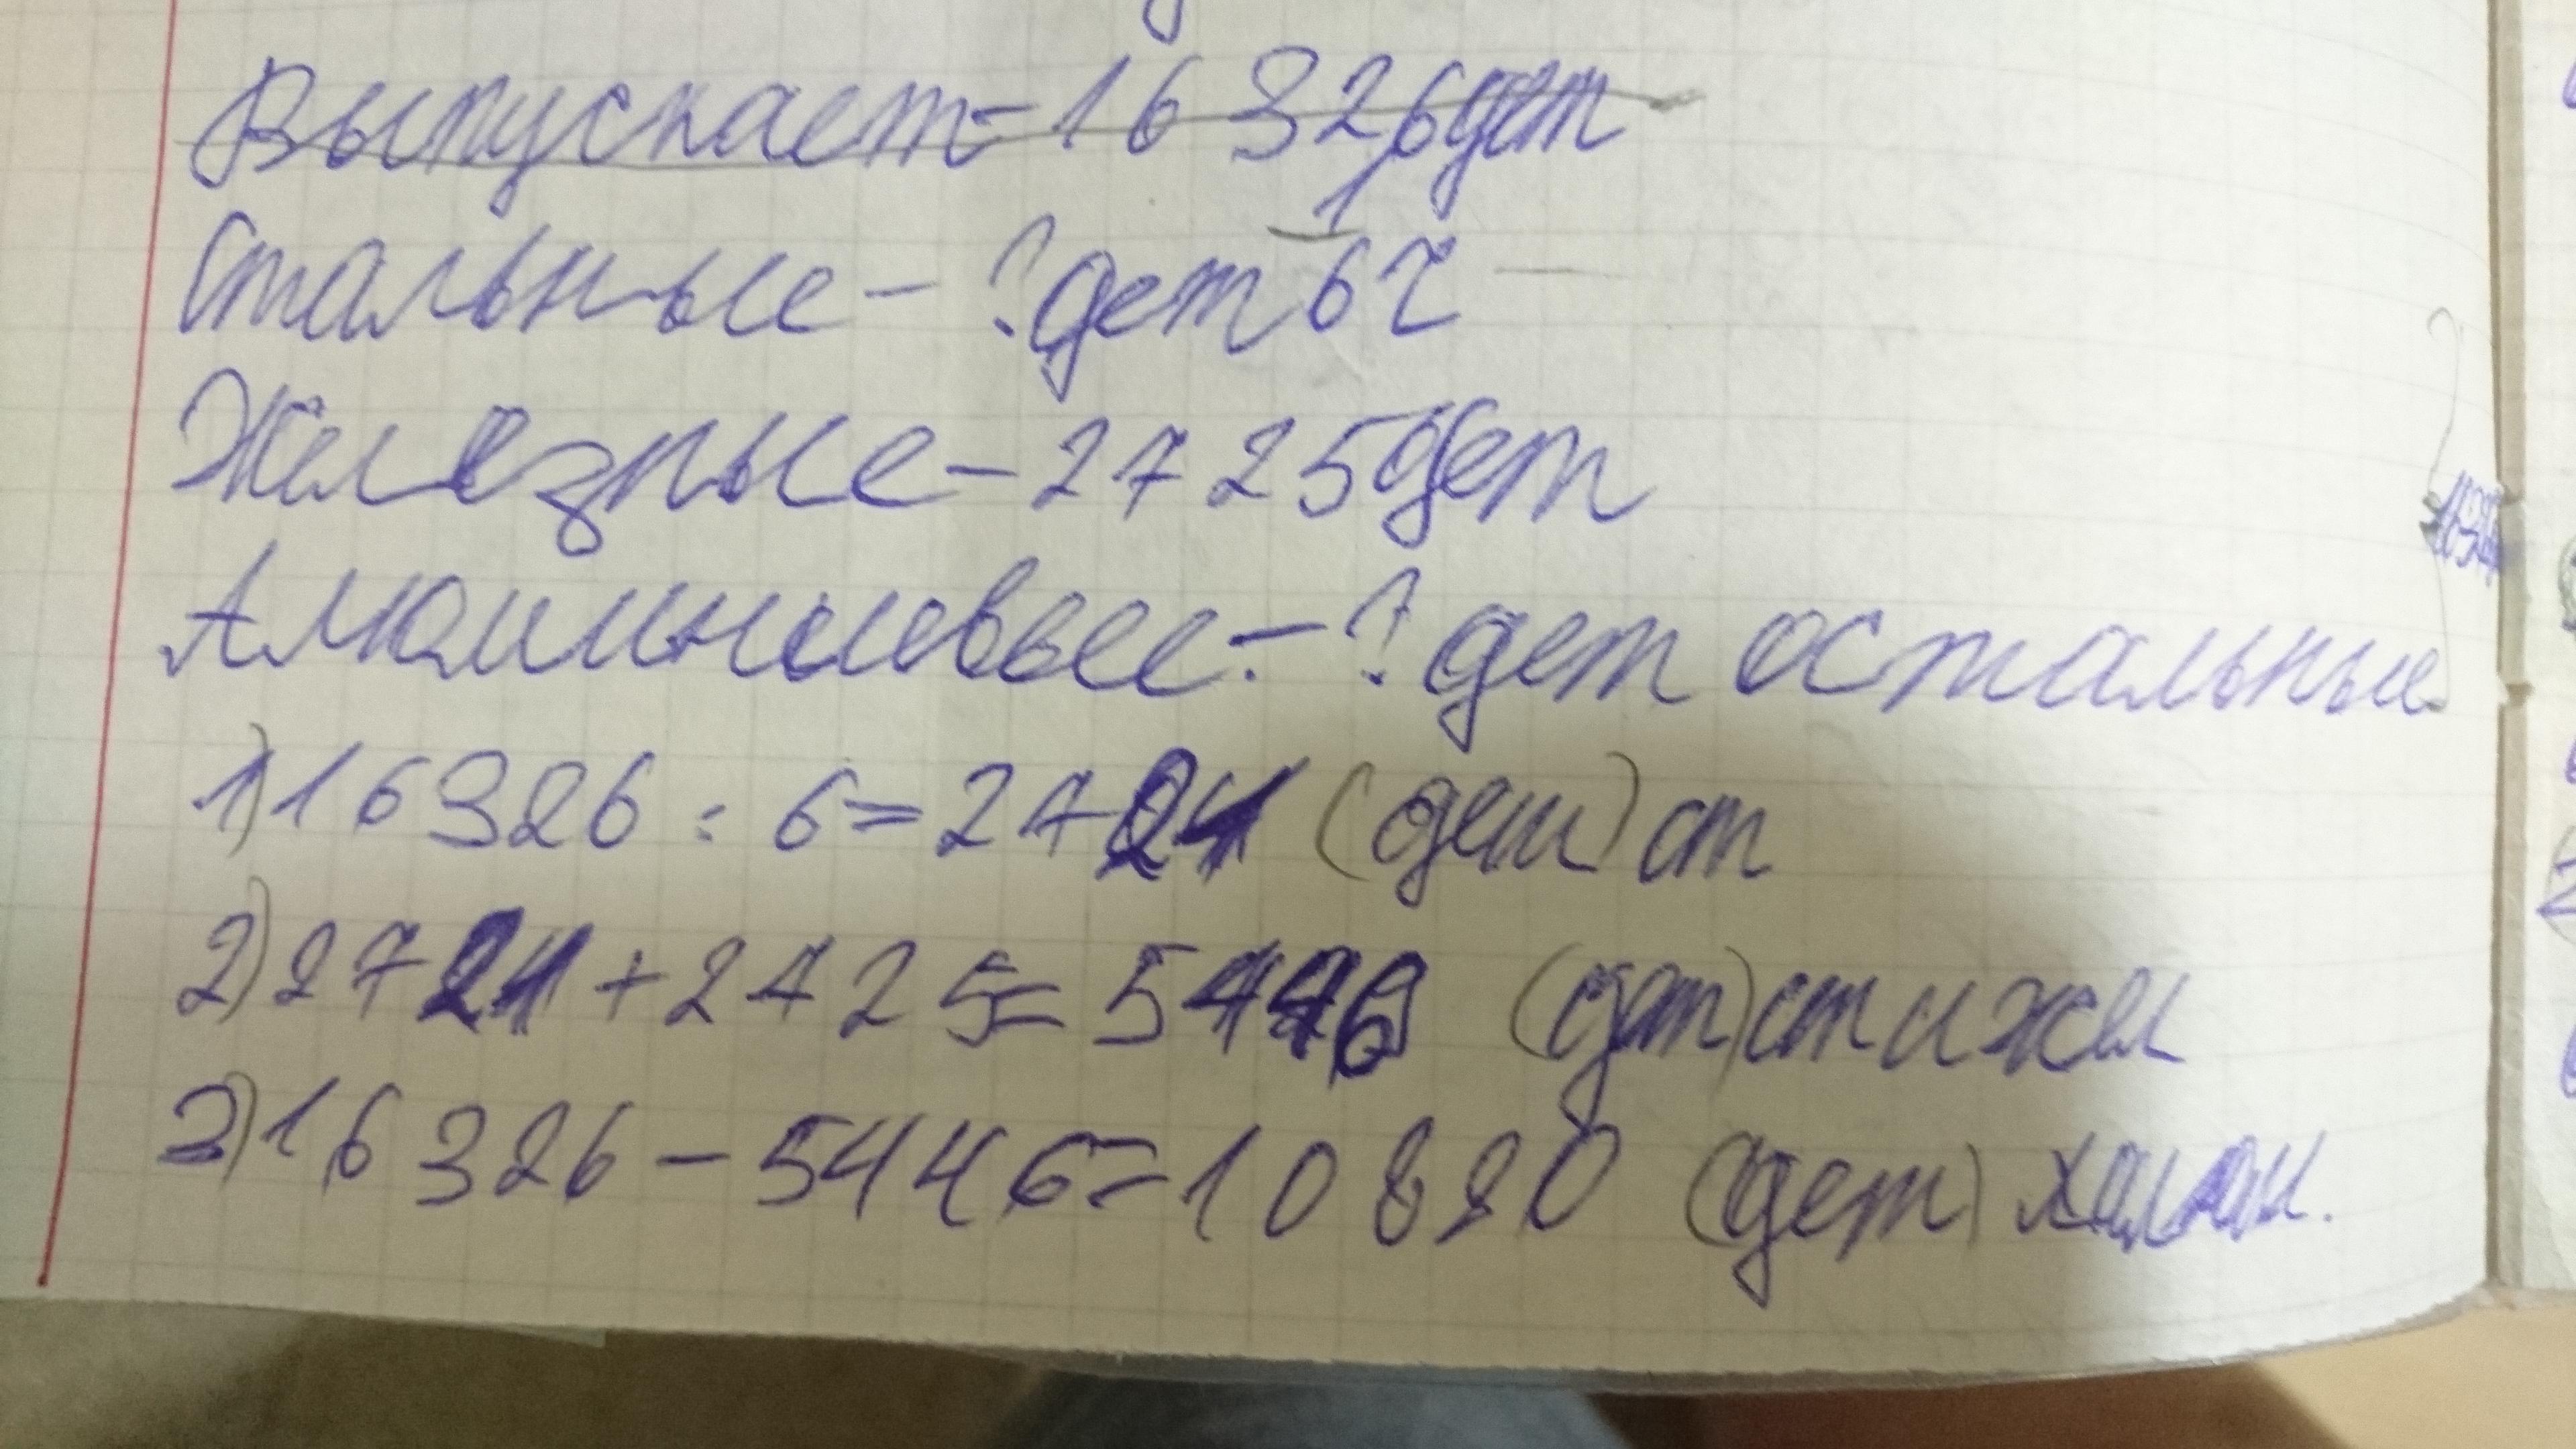 Выпускает-16 326дет
Стальные-?дет 1/6 Ч
Железные-2725дет
Алюминиевые-?дет остальные
1)16326:6=2721 (дет) ст
2)2721+2725=5446 (дет) ст и жел
3)16326-5446=10880 (дет)